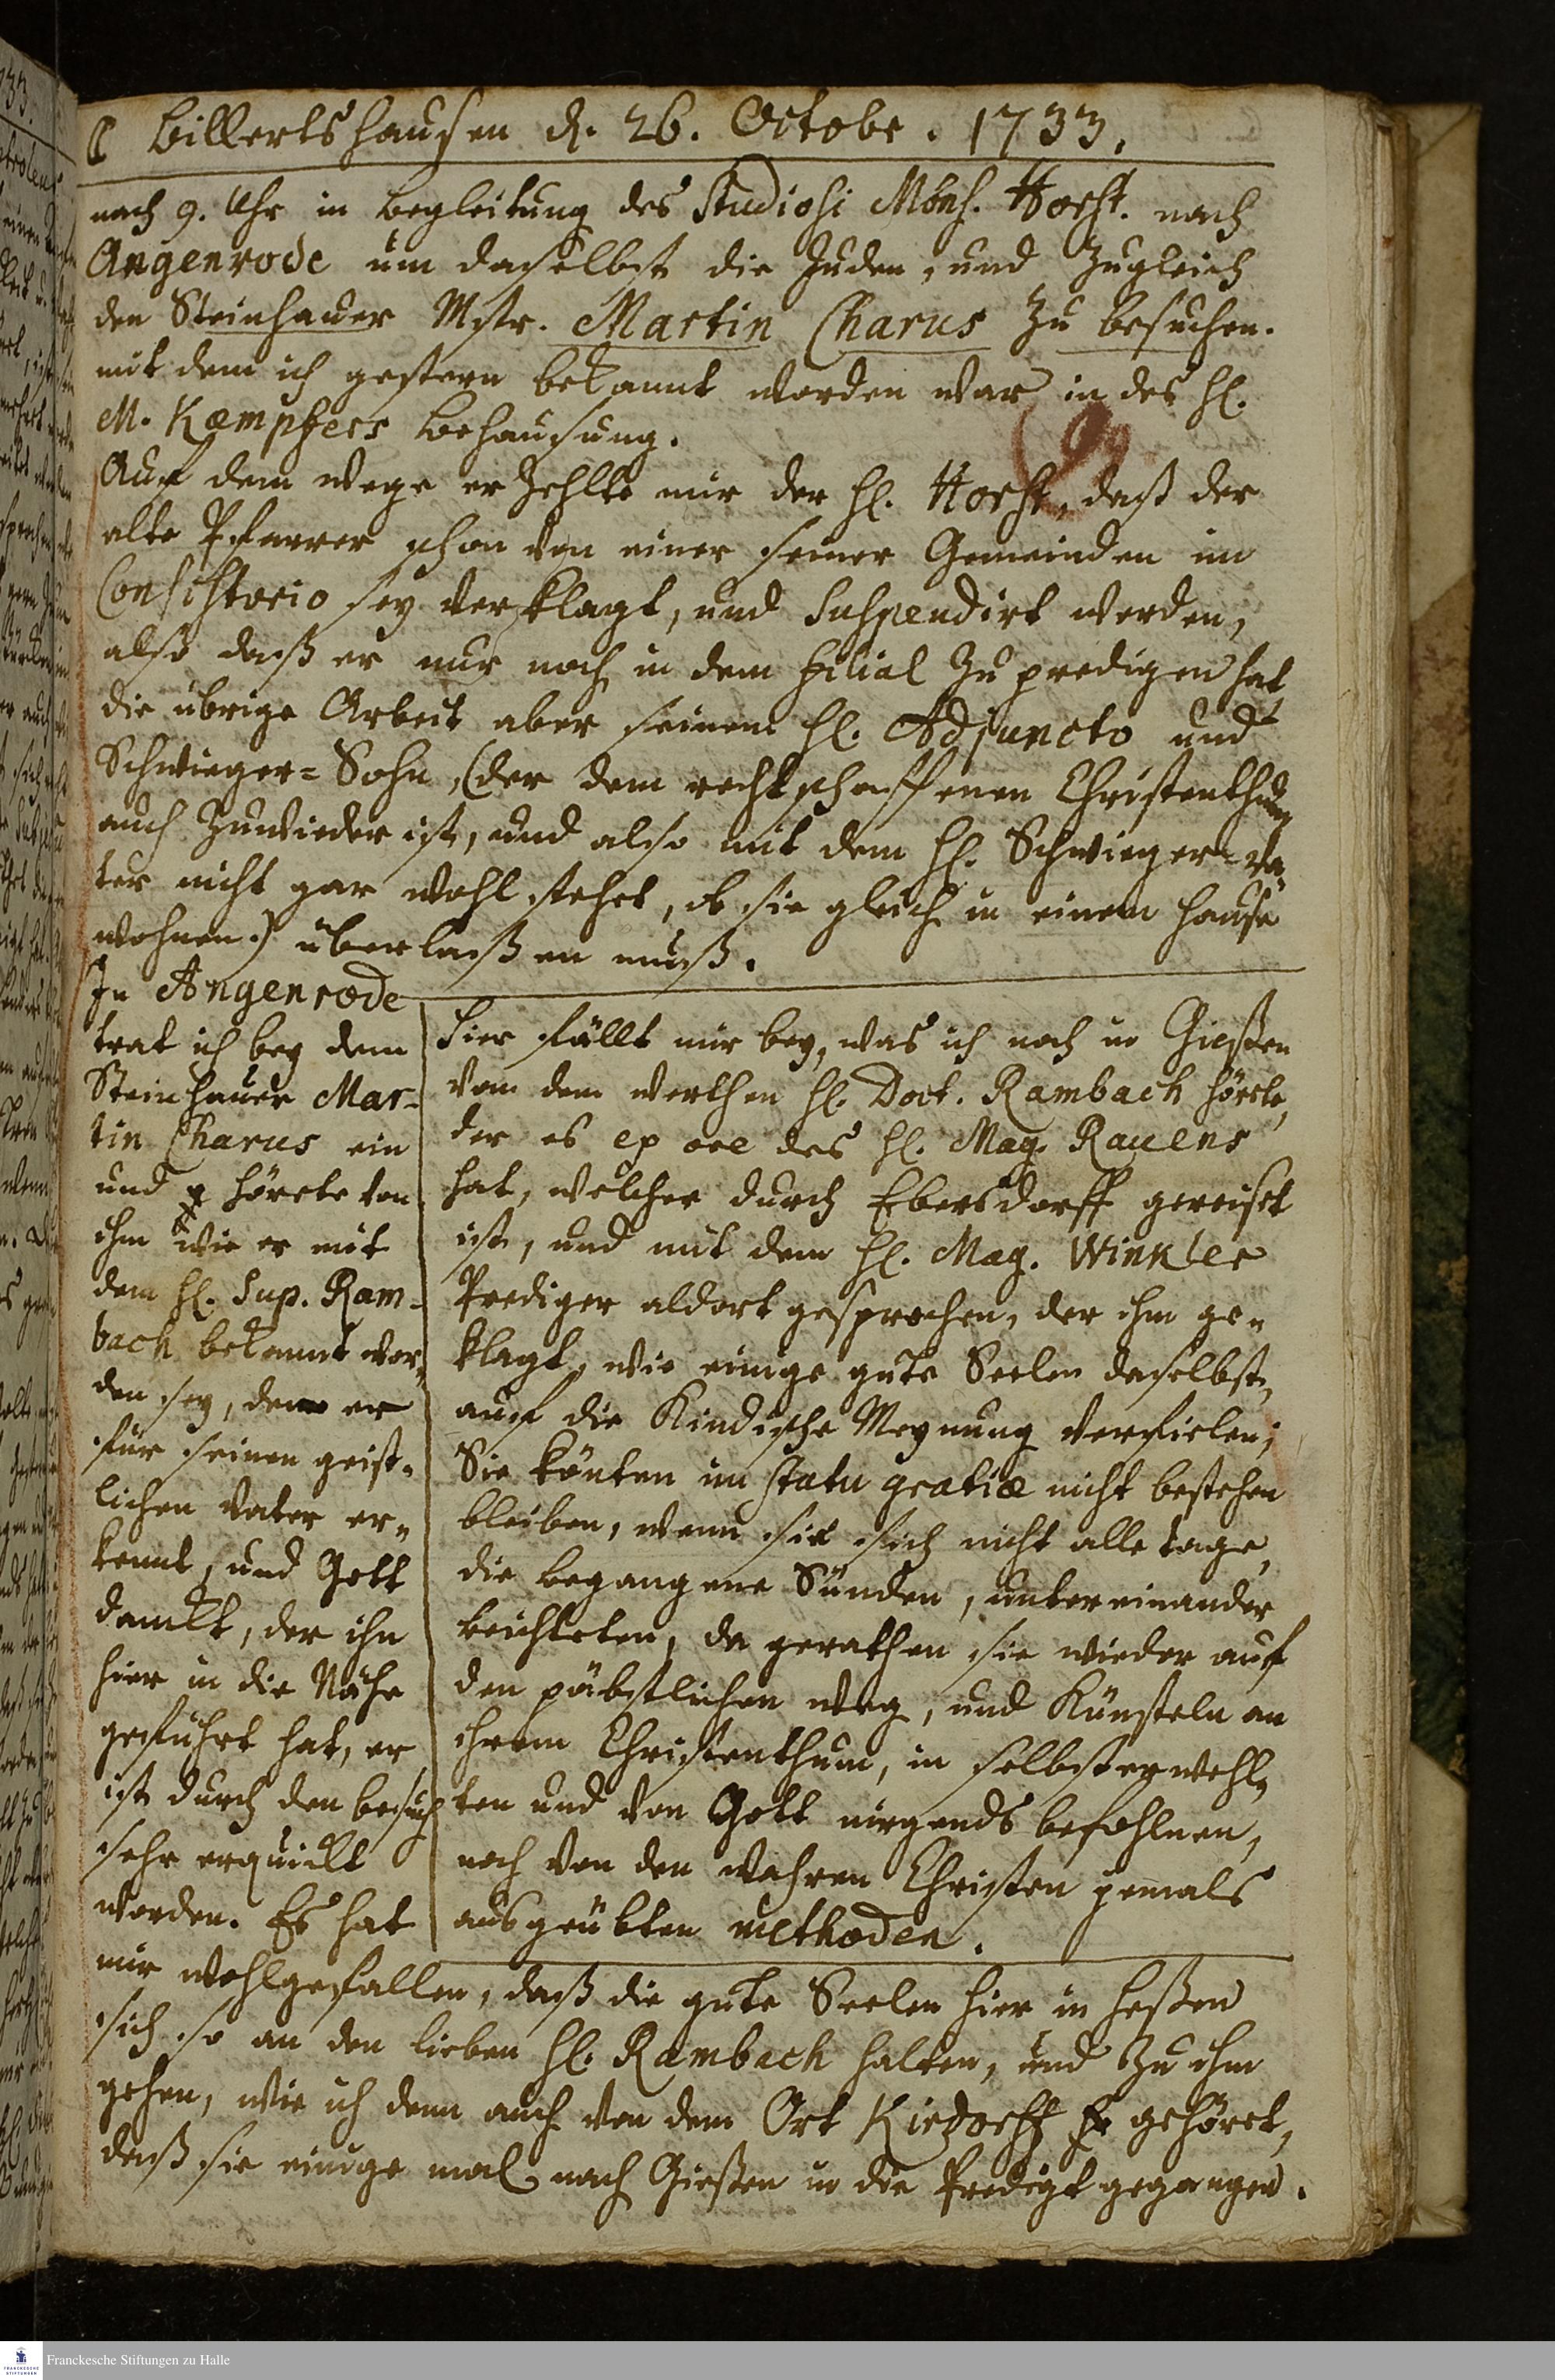 ☾ Billertshausen d. 26. Octobr. 1733.
nach 9. Uhr in begleitung des Studiosi Mons. Horst. nach
Angenrode um daselbst die Juden, und zugleich
den Steinhauer Mstr. Martin Charus zu besuchen.
mit dem ich gestern bekannt worden war in des H.
M. Kæmpfers behausung.
Auf dem wege erzehlte mir der H. Horst, daß der
alte Pfarrer schon von einer seiner Gemeinden im
Consistorio sey verklagt, und suspendirt worden,
also daß er nur noch in dem filial zu predigen hat
die übrige Arbeit aber seinem H. Adjuncto und
Schwieger=Sohn, (der dem rechtschaffenen Christenthum
auch zuwieder ist, und also mit dem H. Schwieger=Va=
ter nicht gar wohl stehet, ob sie gleich in einem hause
wohnen.) überlaßen muß.
In Angenrode
trat ich bey dem
Steinhauer Mar-
tin Charus ein
und hörete von
ihm wie er mit
dem H. Sup. Ram-
bach bekannt wor=
den sey, den er
für seinen geist=
lichen Vater er=
kennt, und Gott
danckt, der ihn
hier in die Nähe
geführt hat, er
ist durch den besuch
sehr erquickt
worden. Es hat
Hier fällt mir bey, was ich noch in Gießen
von dem werthen H. Doct. Rambach hörete,
der es ex ore des H. Mag. Rauens
hat, welcher durch Ebersdorff gereiset
ist, und mit dem H. Mag. Winkler
Prediger aldort gesprochen, der ihm ge=
klagt, wie einige gute Seelen daselbst,
auf die Kindische Meynung verfielen;
Sie könten im statu gratiæ nicht bestehen
bleiben, wenn sie sich nicht alle tage,
die begangene Sünden, untereinander
beichteten, da gerathen sie wieder auf
den päbstlichen weg, und Künsteln an
ihrem Christenthum, in selbst erwehl=
ten und von Gott nirgends befohlnen,
noch von den wahren Christen jemals
ausgeübten methoden.
mir wohlgefallen, daß die gute Seelen hier in Heßen
sich so an den lieben H. Rambach halten, und zu ihm
gehen, wie ich denn auch von dem Ort Kirdorff gehöret,
daß sie einige mal nach Gießen in die Predigt gegangen.
FRANCKESCHE STIFTUNGEN
Franckesche Stiftungen zu Halle